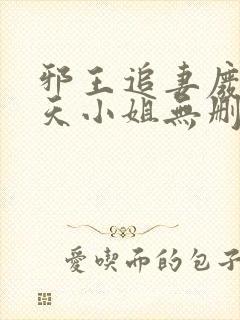 邪王追妻廢
天小姐無刪
愛喫而的包子